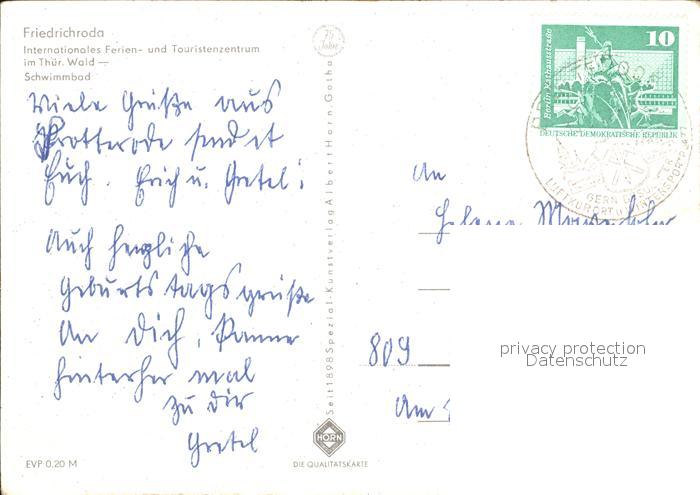 Friedrichroda
Internationales Ferien- und Touristenzentrum
im Thür. Wald —
Schwimmbad
Viele Grüße aus
Brotterode sendet
Euch. Erich u. Gretel!
Auch herzliche
Geburtstagsgrüße
An Dich, komme
hinterher mal
zu dir
Gretel
EVP 0,20 M
75 Jahre
Seit 1898 Spezial-Kunstverlag Albert Horn Gotha
HORN
DIE QUALITÄTSKARTE
10
Berlin Rathausstraße
DEUTSCHE DEMOKRATISCHE REPUBLIK
GERN BESUCHTER
LUFTKURORT U. WINTERSPORTPLATZ
An
Helene
809
Am
privacy protection
Datenschutz